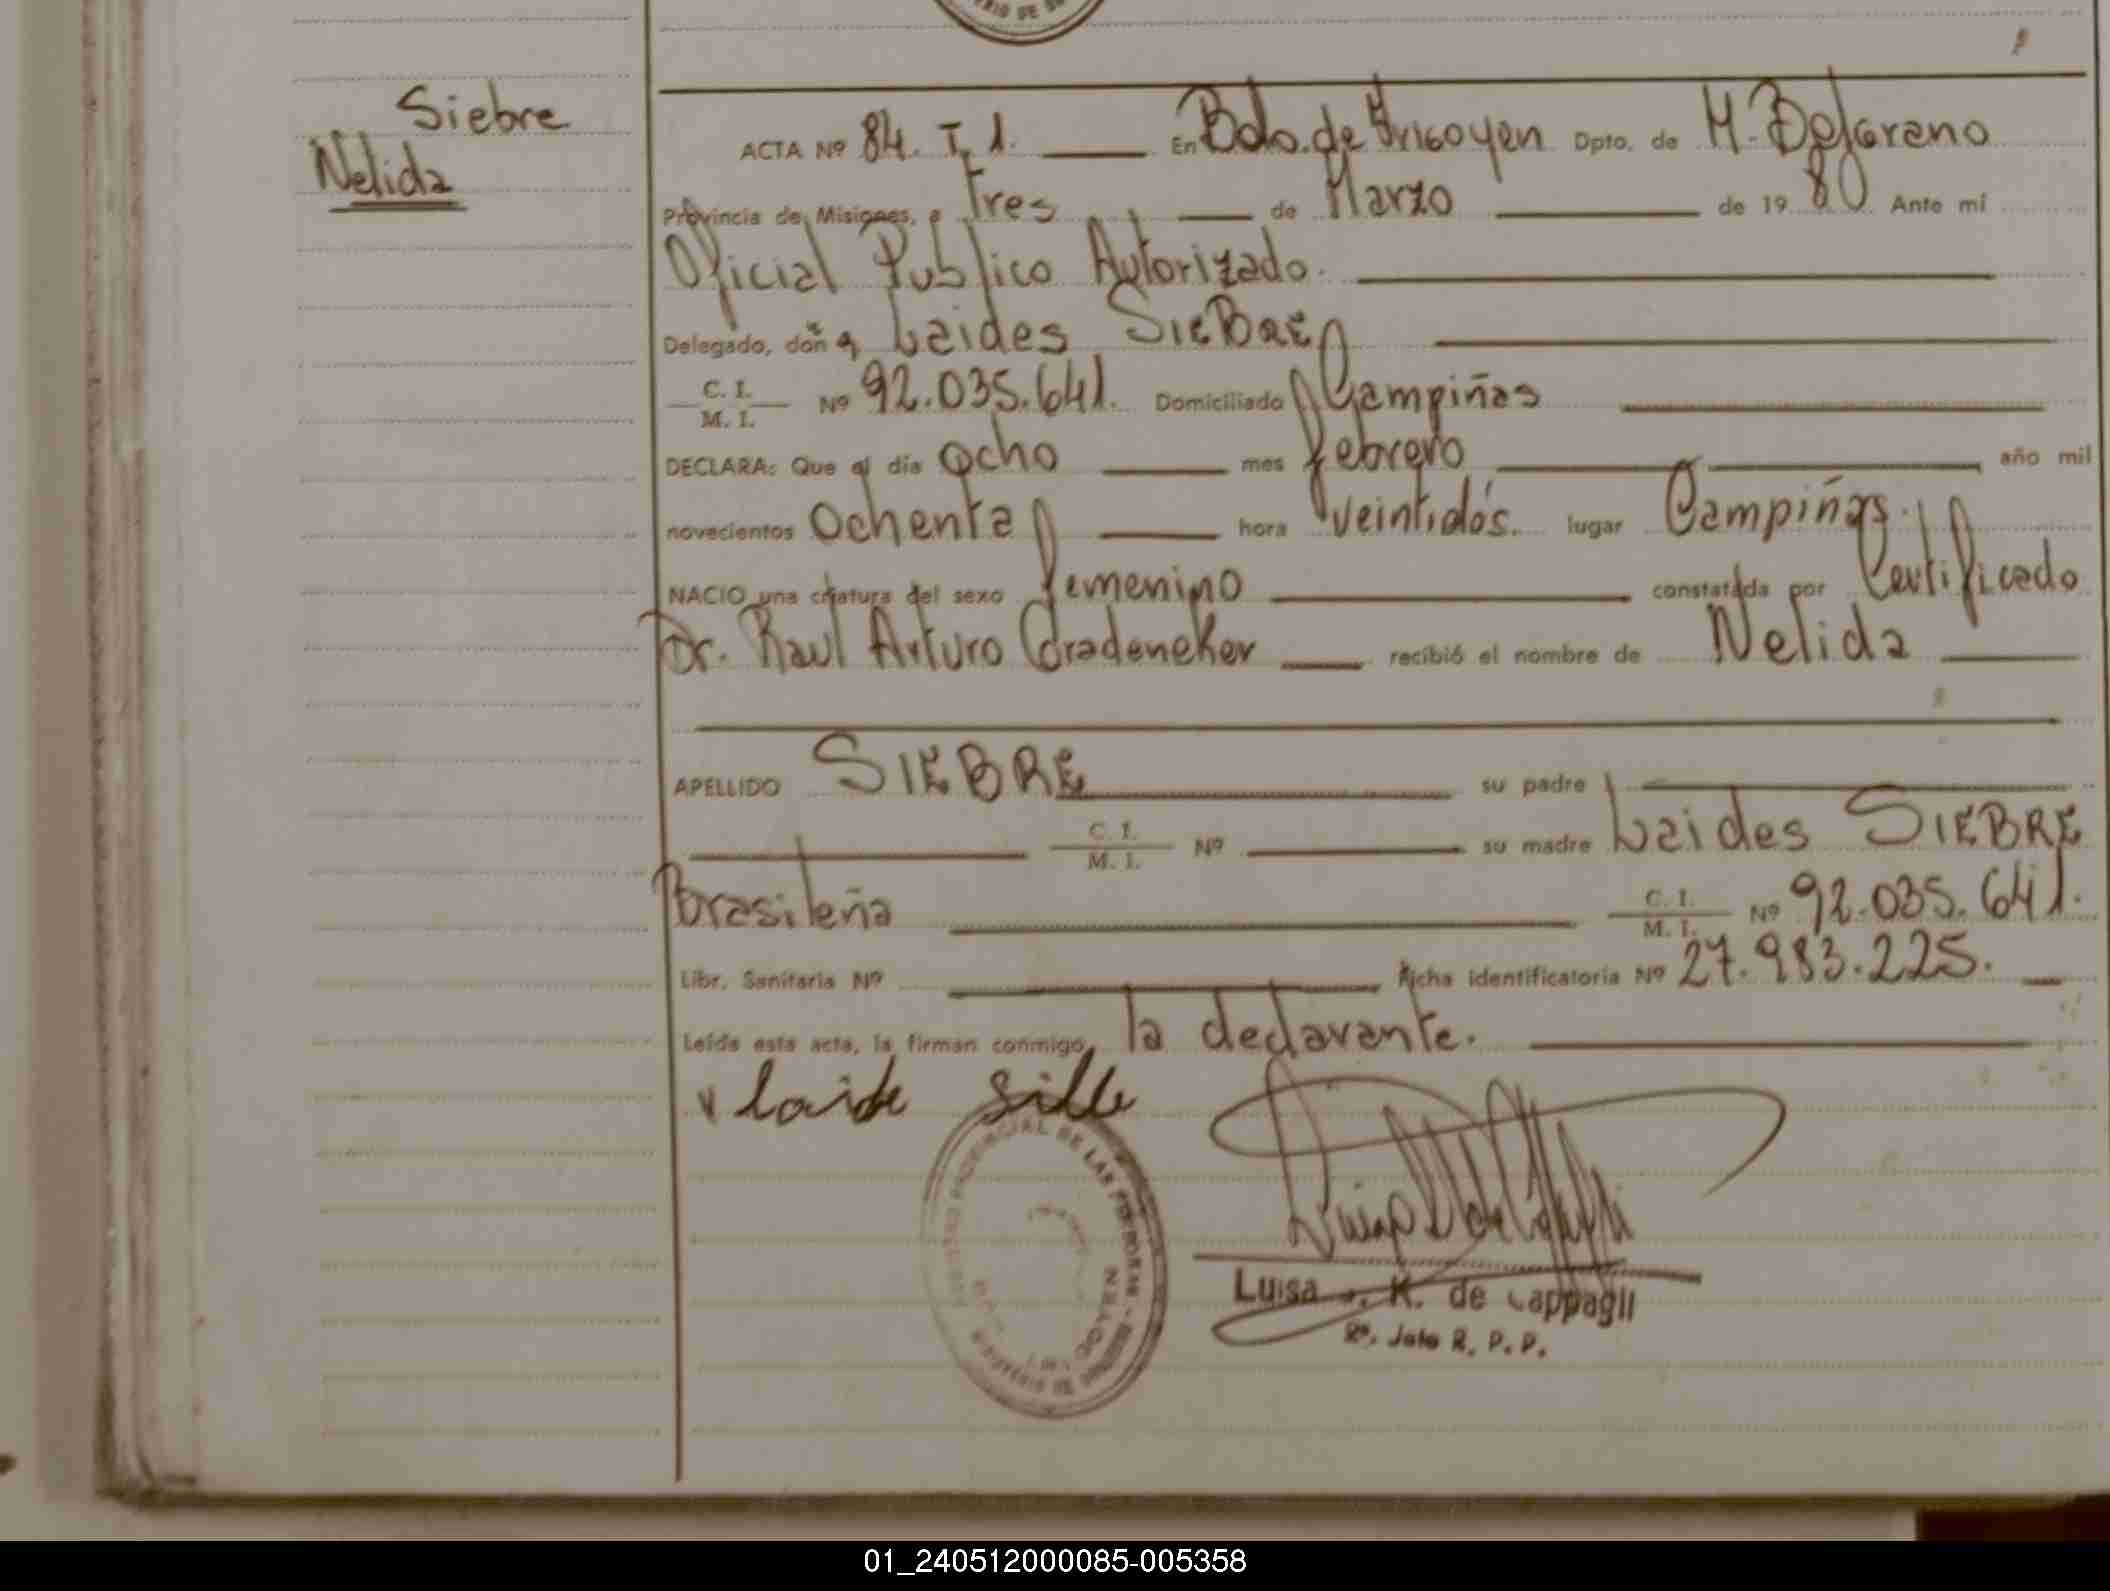 Siebre
Nelida
ACTA Nº 84. T. 1. En Bdo. de Yrigoyen Dpto. de M. Belgrano
Provincia de Misiones, a Tres de Marzo de 1980 Ante mí
Oficial Publico Autorizado.
Delegado, doña Laides SIEBRE
C. I.
M. I. Nº 92.035.641. Domiciliado Campiñas
DECLARA: Que el día ocho mes febrero año mil
novecientos ochenta hora veintidós. lugar Campiñas.
NACIO una criatura del sexo femenino constatada por Certificado
Dr. Raul Arturo recibió el nombre de Nelida
APELLIDO SIEBRE su padre
C. I.
M. I. Nº su madre Laides SIEBRE
Brasileña C. I.
M. I. Nº 92.035.641.
Libr. Sanitaria Nº Ficha identificatoria Nº 27.983.225.
Leída esta acta, la firman conmigo, la declarante.
PROVINCIAL DE LAS PERSONAS
Luisa K. de Cappagli
Jefe R. P. P.
01_240512000085-005358